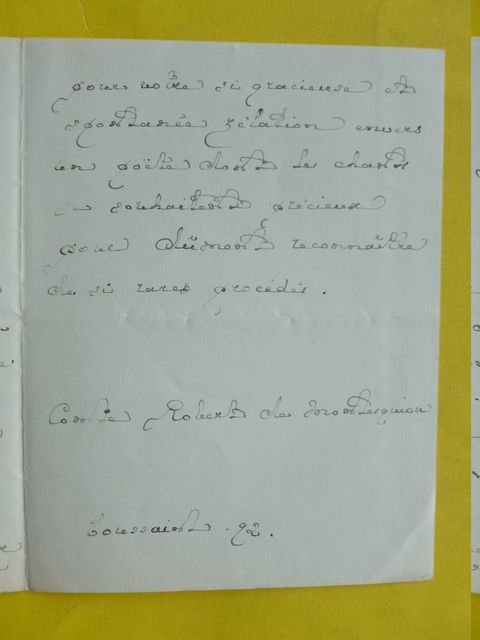 pour votre si gracieuse et
spontanée rélation envers
un poëte dont les chants
se souhaitent précieux
pour dûment reconnaître
de si rares procédés.
Comte Robert de Montesquiou
Toussaint .92.